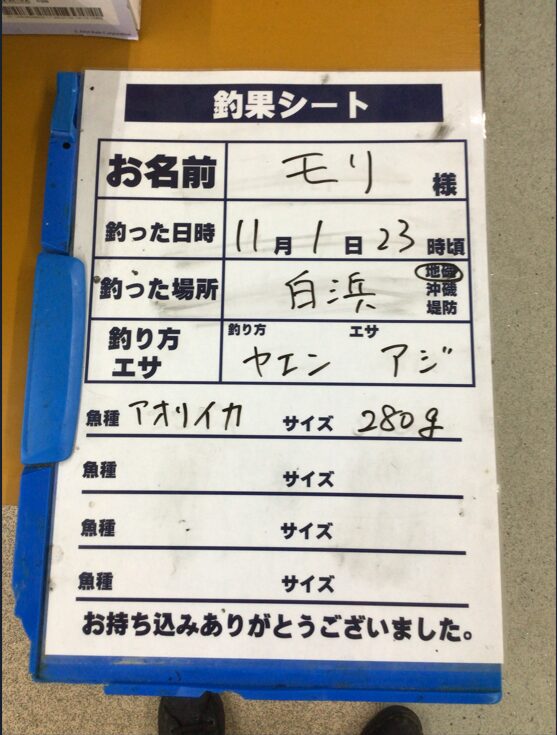 釣果シート
お名前 モリ 様
釣った日時 11月1日23時頃
釣った場所 白浜 地磯
沖磯
堤防
釣り方 エサ 釣り方 ヤエン エサ アジ
魚種 アオリイカ サイズ 280g
魚種 サイズ
魚種 サイズ
魚種 サイズ
お持ち込みありがとうございました。